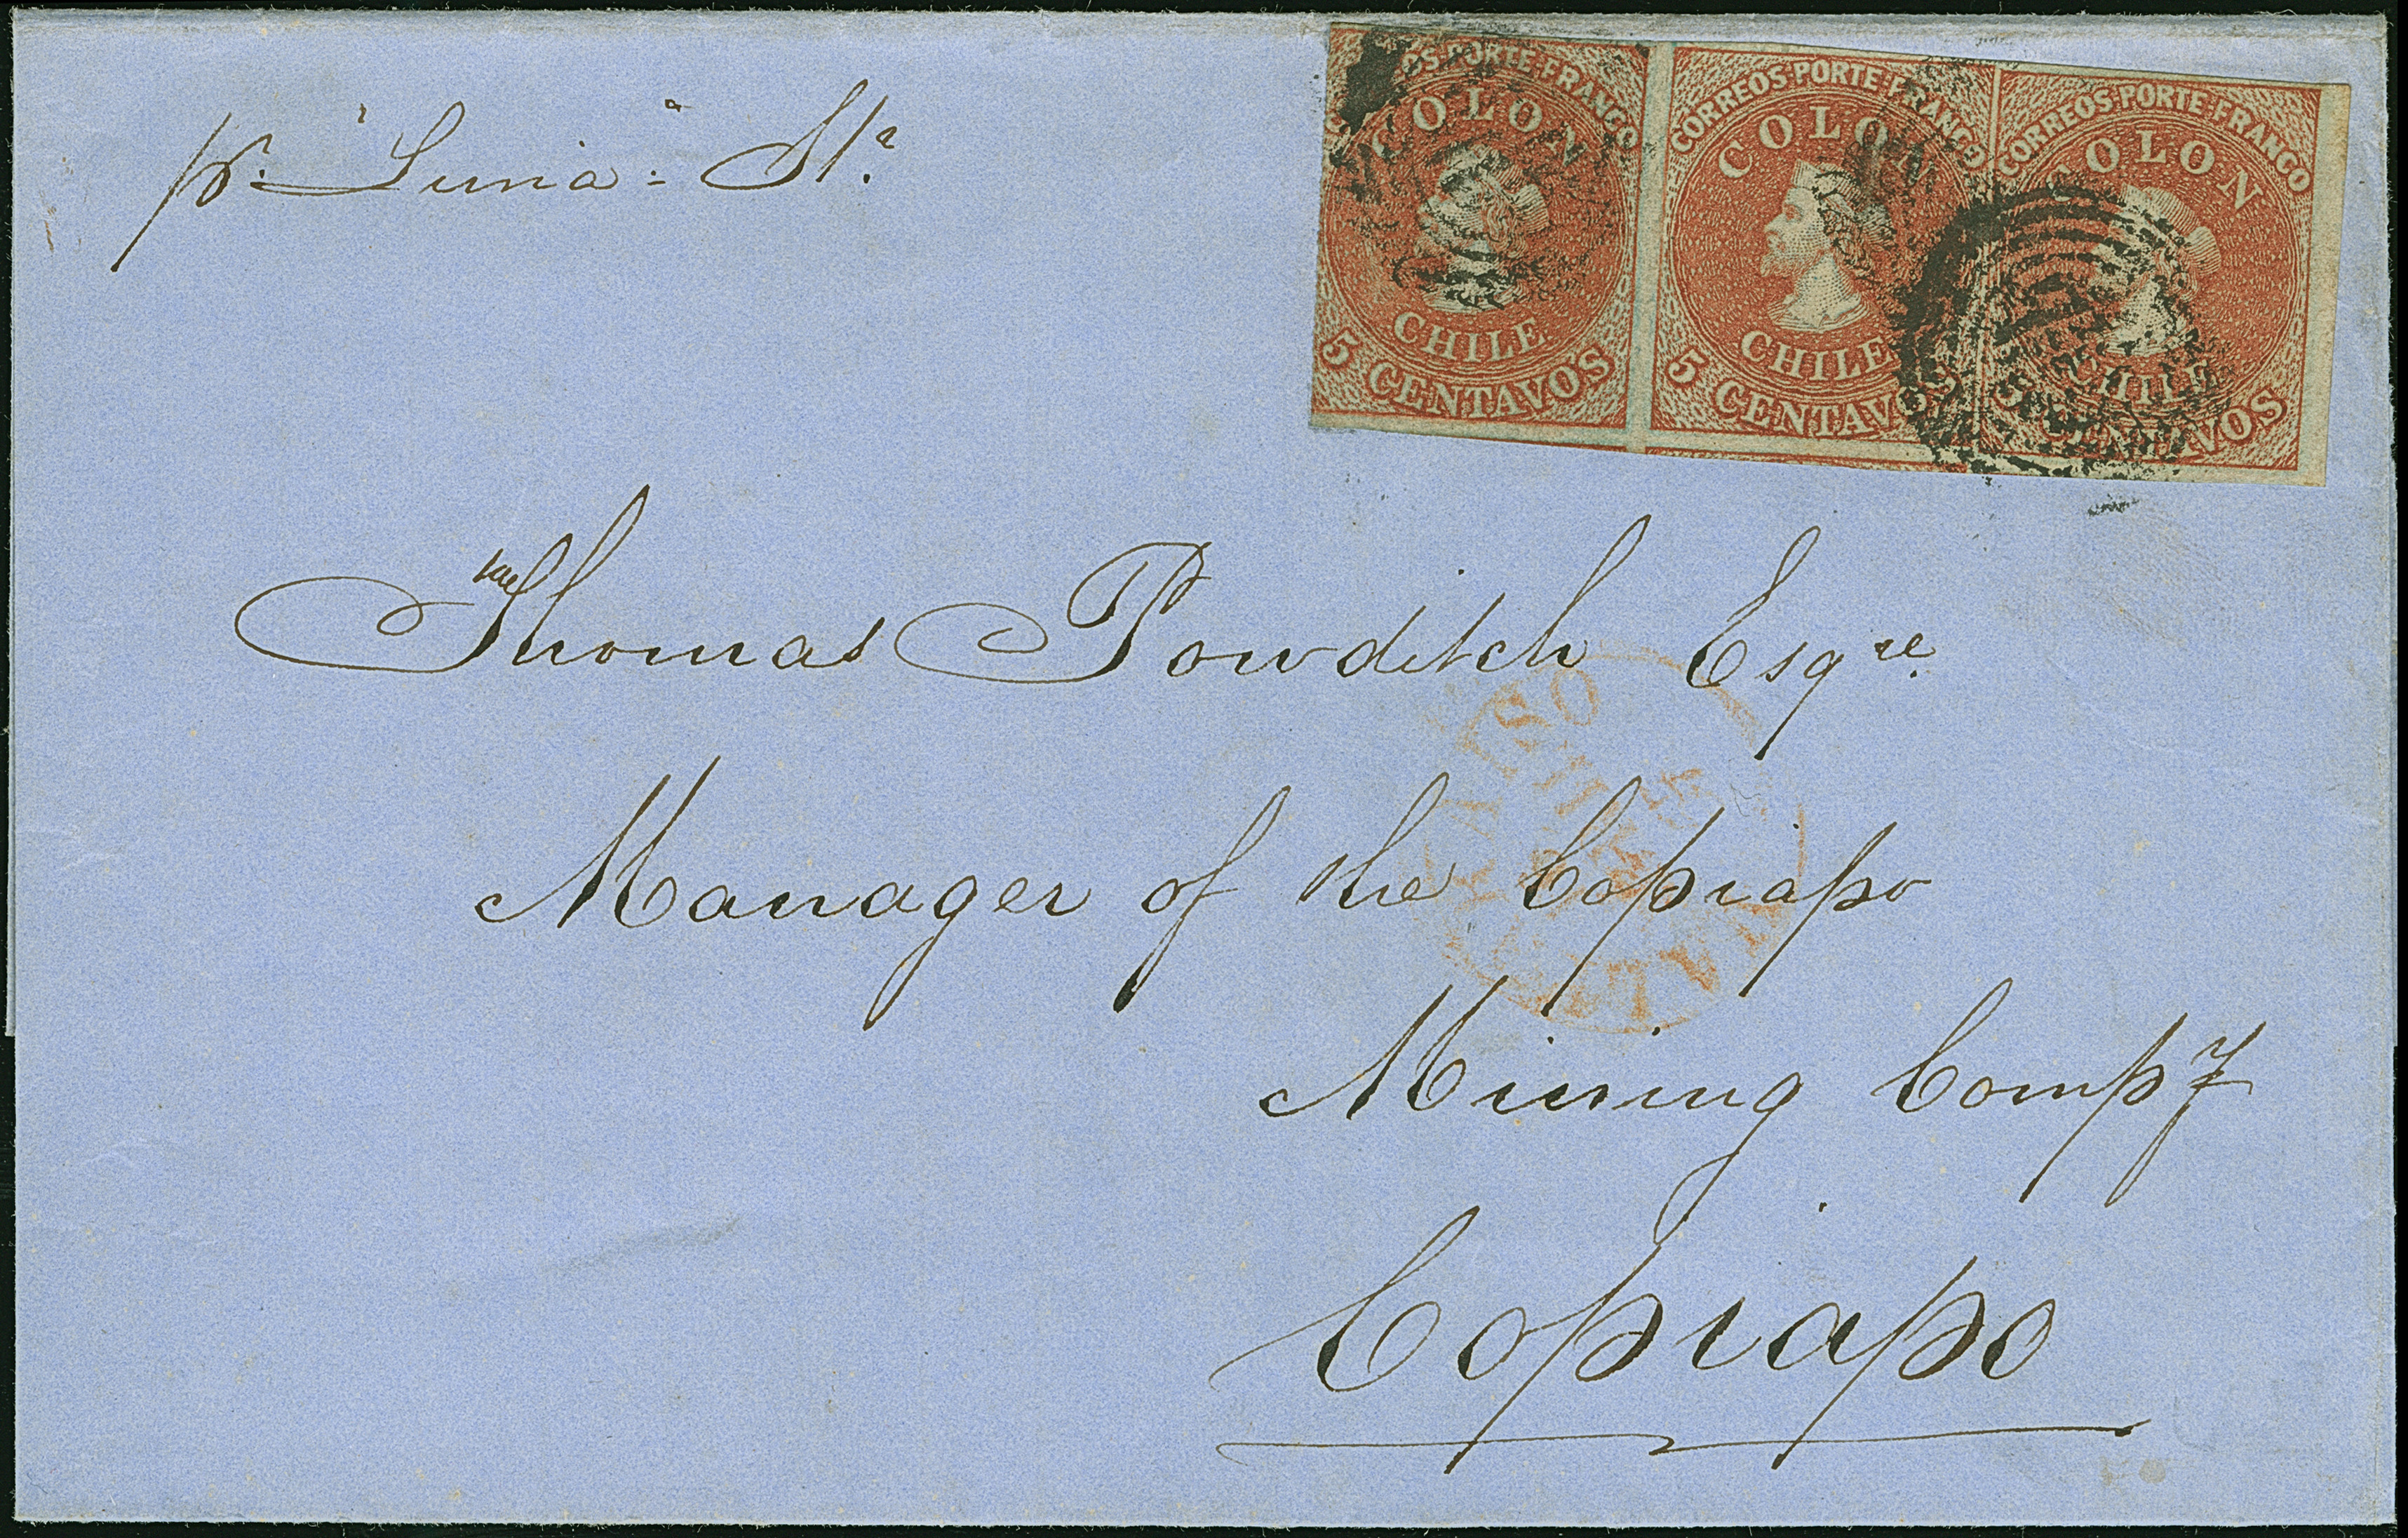 pr. "Luna" Str.
CORREOS·PORTE·FRANCO
COLON
CHILE
5 CENTAVOS
CORREOS·PORTE·FRANCO
COLON
CHILE
5 CENTAVOS
CORREOS·PORTE·FRANCO
COLON
CHILE
CENTAVOS
Thomas Powditch Esqre.
Manager of the Copiapo
Mining Compy
Copiapo
VALPARAISO
CHILE